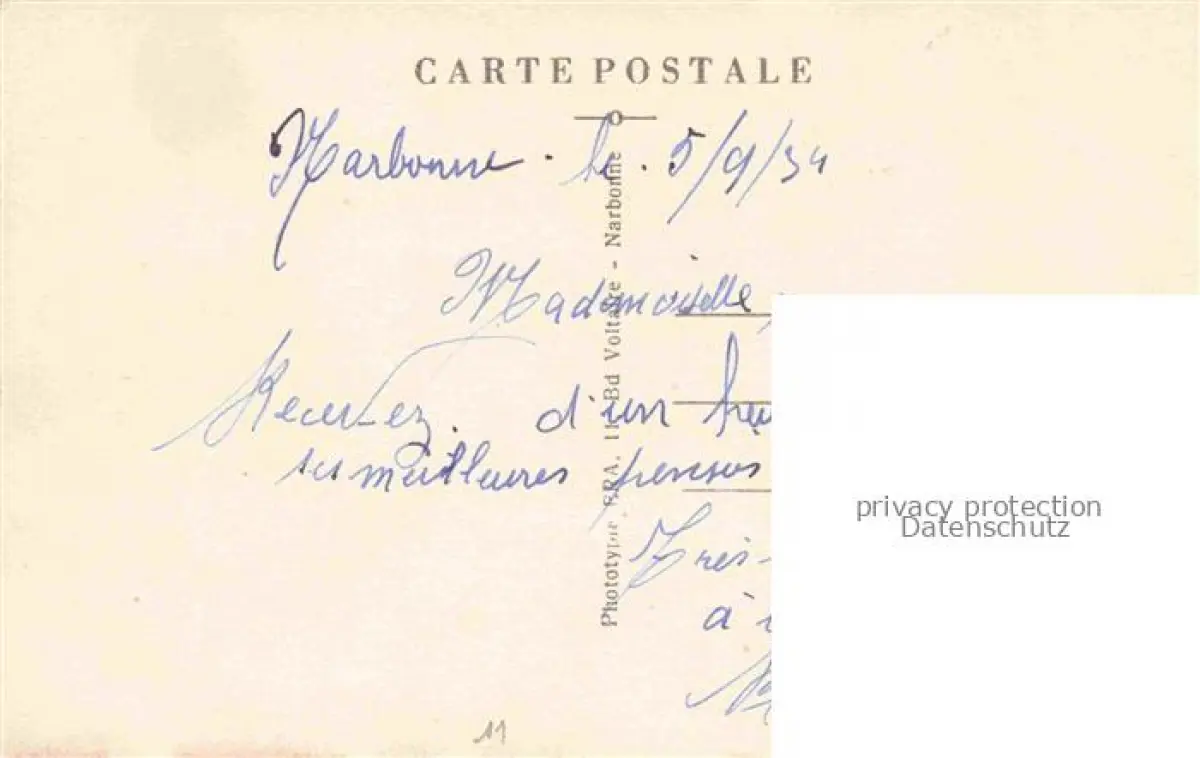 CARTE POSTALE
Narbonne. le. 5/9/34
Mademoiselle
Recevez. d'un
ses meilleures pensées
Très-
à
Phototypie ERA, 11 Bd Voltaire - Narbonne
privacy protection
Datenschutz
11